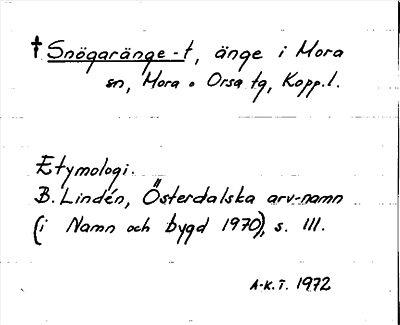 † Snögaränge-t, änge i Mora
sn, Mora o Orsa tg, Kopp.l.
Etymologi.
B. Lindén, Österdalska arv-namn
(i Namn och bygd 1970), s. 111.
A-K.T. 1972